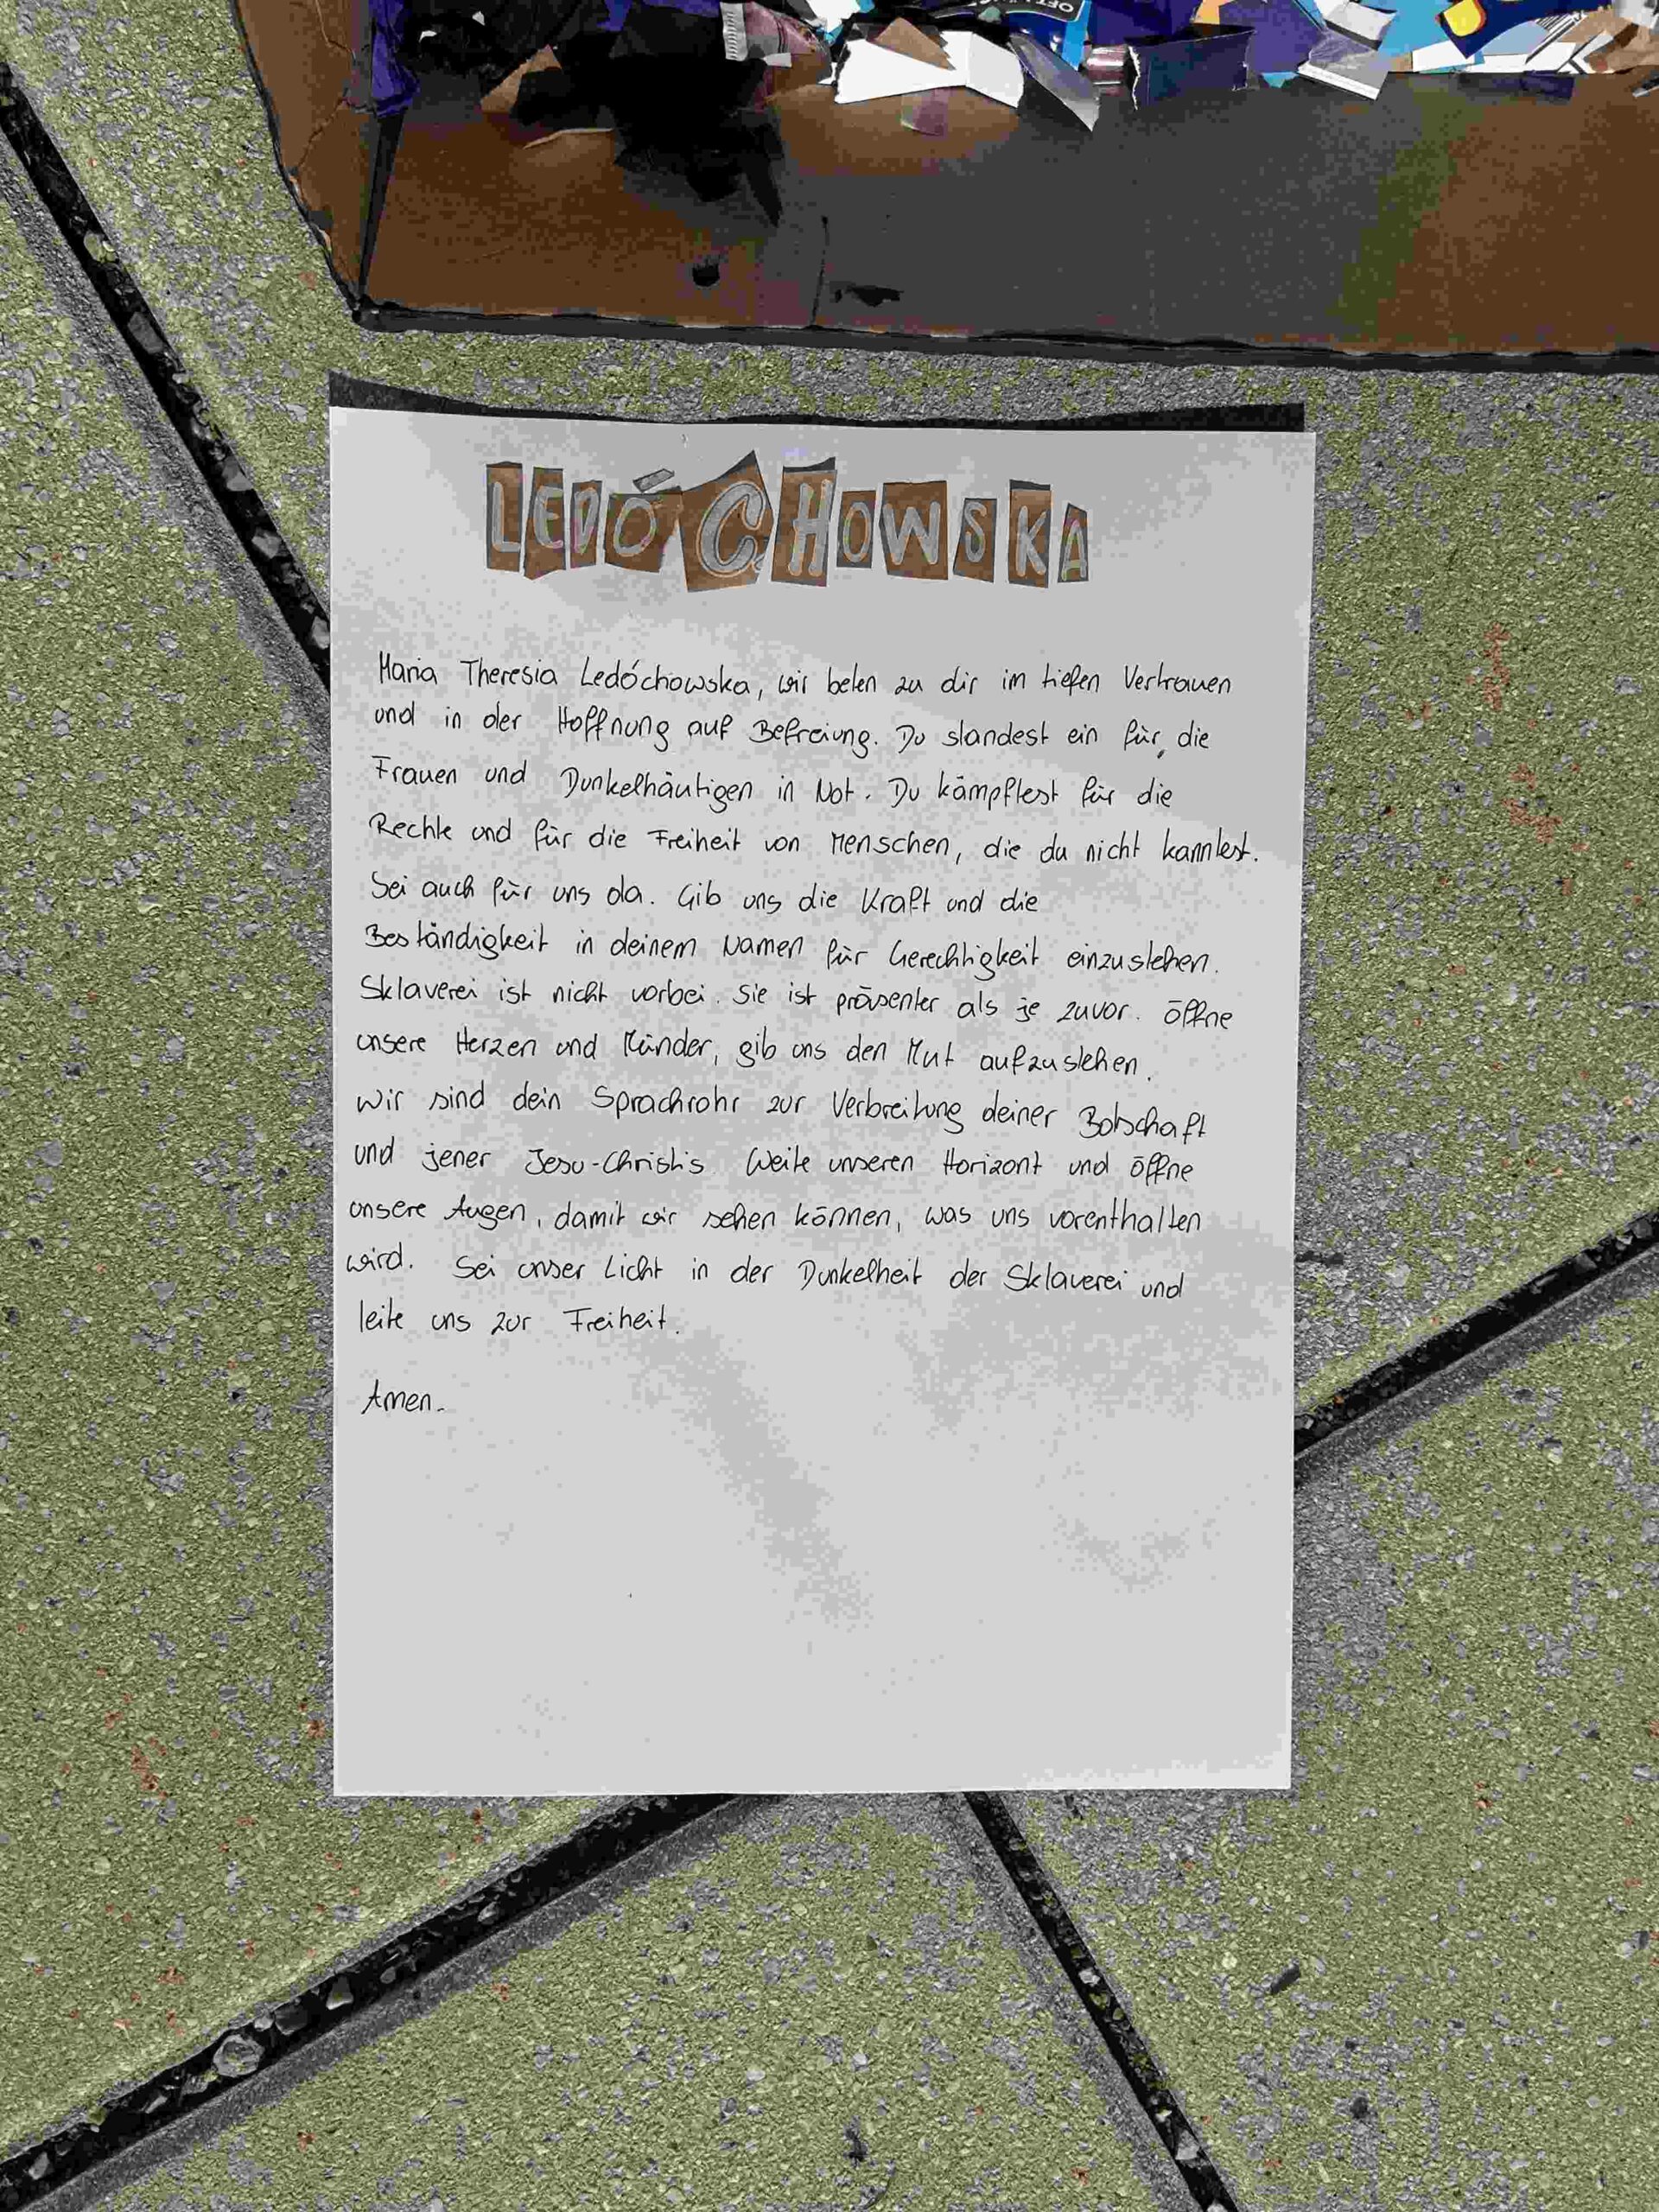 LEDÓCHOWSKA
Maria Theresia Ledóchowska, wir beten zu dir im tiefen Vertrauen
und in der Hoffnung auf Befreiung. Du standest ein für die
Frauen und Dunkelhäutigen in Not. Du kämpftest für die
Rechte und für die Freiheit von Menschen, die du nicht kanntest.
Sei auch für uns da. Gib uns die Kraft und die
Beständigkeit in deinem Namen für Gerechtigkeit einzustehen.
Sklaverei ist nicht vorbei. Sie ist präsenter als je zuvor. Öffne
unsere Herzen und Münder, gib uns den Mut aufzustehen.
Wir sind dein Sprachrohr zur Verbreitung deiner Botschaft
und jener Jesu-Christis. Weite unseren Horizont und öffne
unsere Augen, damit wir sehen können, was uns vorenthalten
wird. Sei unser Licht in der Dunkelheit der Sklaverei und
leite uns zur Freiheit.
Amen.